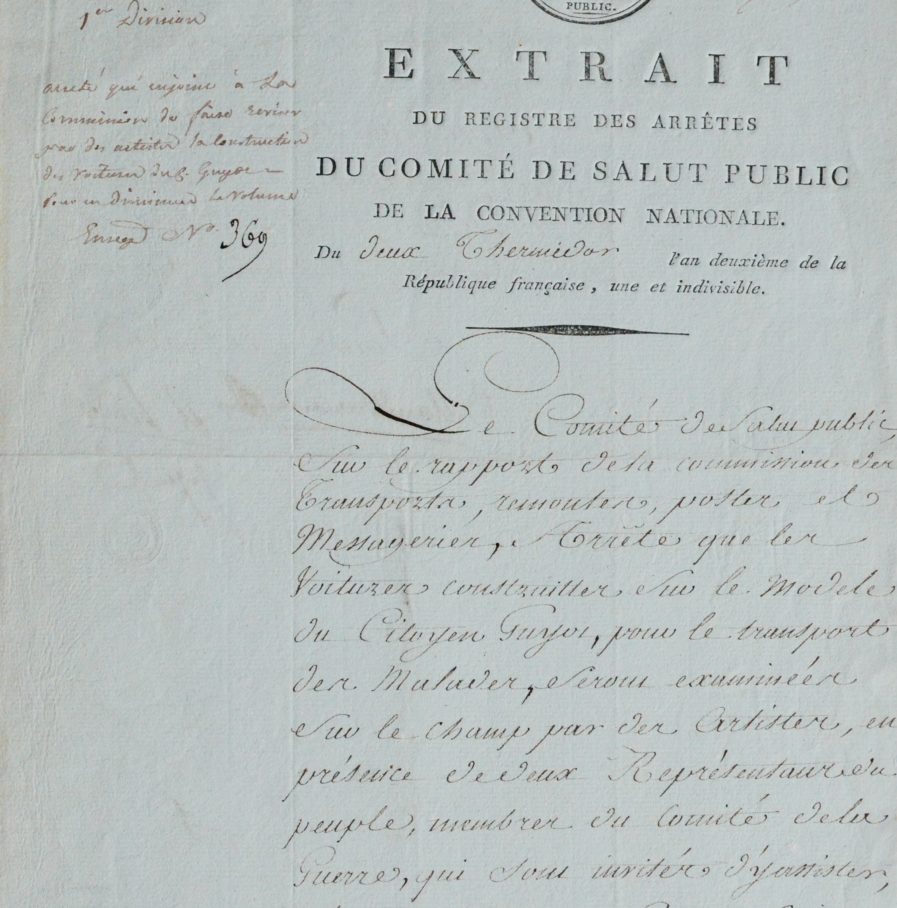 PUBLIC.
1ere Division
arreté qui enjoint à La
Commission de faire reviser
par des artistes la Construction
des Voitures du C. Guyot
pour en diminuer le Volume
Enregé N.o 369
EXTRAIT
DU REGISTRE DES ARRÊTÉS
DU COMITÉ DE SALUT PUBLIC
DE LA CONVENTION NATIONALE.
Du deux Thermidor l'an deuxième de la
République française, une et indivisible.
Le Comité de Salut public,
Sur le rapport de la commission des
Transports, remontes, postes et
Messageries, Arrête que les
Voitures construittes Sur le Modele
du Citoyen Guyot, pour le transport
des Malades, Seront examinées
Sur le champ par des Artistes, en
présence de deux Représentans du
peuple, membres du Comité de la
Guerre, qui Sont invités d'y assister,